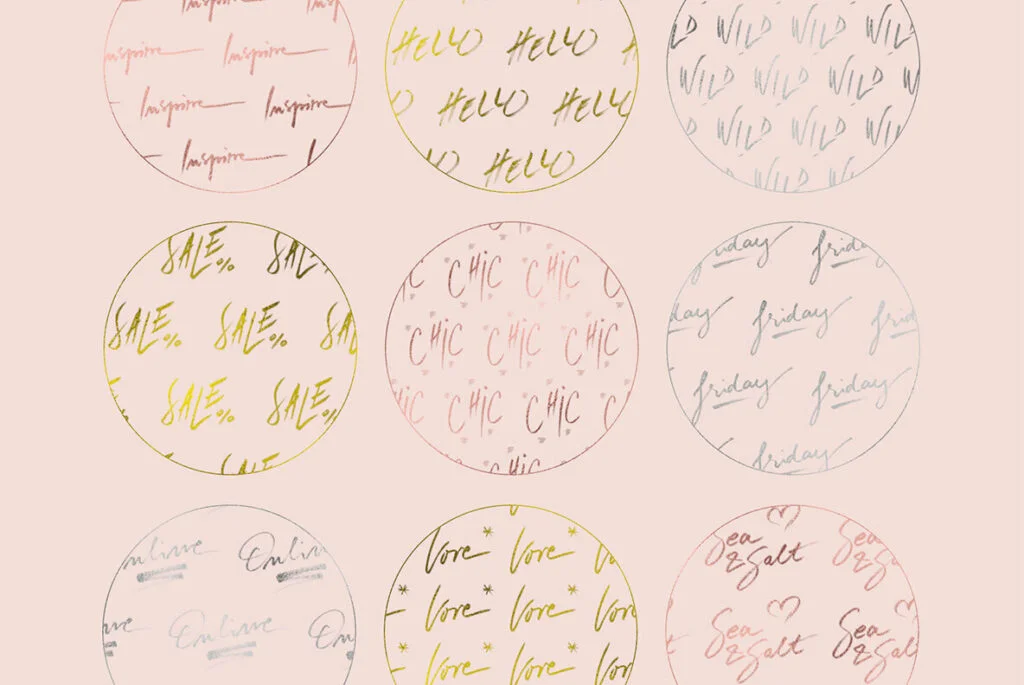 Inspire Inspire
Inspire Inspire
Inspire
HELLO HELLO H
O HELLO HELLO
LO HELLO
LD WILD WILD
WILD WILD WILD W
WILD WILD WILD
WILD WILD
SALE% SAL
SALE% SALE% SA
SALE% SALE%
SALE
IC CHIC CHIC
CHIC CHIC CHIC
CHIC CHIC C
CHIC
friday frida
day friday frid
friday friday
friday
Online Onlin
ne Online On
Love * Love * Lo
Love * Love * Lov
* Love * Love * Lov
Sea Sea
& Salt & Sa
Sea Sea
& Salt & Sal